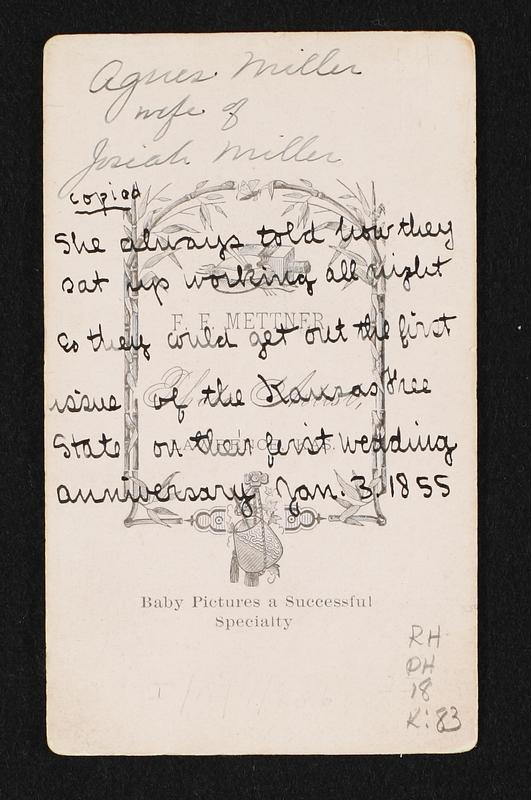 Agnes Miller
wife of
Josiah Miller
copied
She always told how they
sat up working all night
So they could get out the first
F. F. METTNER
issue of the Kansas Free
State on their first wedding
LAWRENCE, KAS.
anniversary Jan. 3. 1855
Baby Pictures a Successful
Specialty
RH
PH
18
K:83